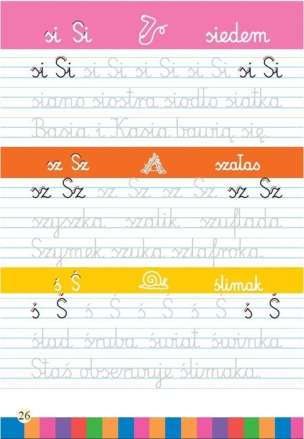 si Si siedem
si Si si Si si Si si Si si Si
siano siostra siodło siatka
Basia i Kasia bawią się
sz Sz szałas
sz Sz sz Sz sz Sz sz Sz
szyszka szalik szuflada
Szymek szuka szlafroka.
ś Ś ślimak
ś Ś ś Ś ś Ś ś Ś ś Ś
ślad śruba świat świnka
Staś obserwuje ślimaka.
26